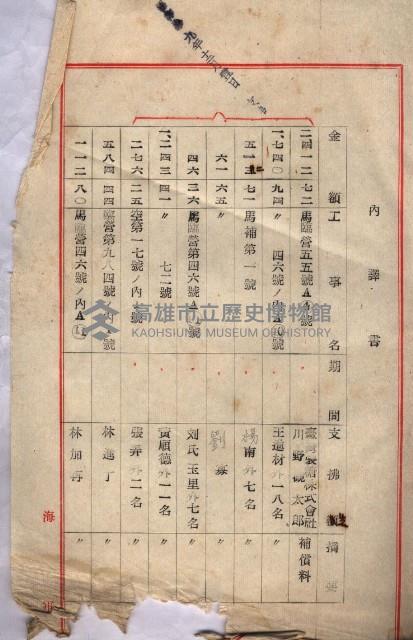 內譯書
金額 工事名 期間 支拂 摘要
二四一二七二 馬臨營五五號A 號 臺灣製糖株式會社 川野磯太郎 補償料
一、七四〇九四 〃 四六號ノ內A 號 王道材外一八名 〃
五一 七一 馬補第一號 楊南外七名 〃
六一六五 〃 劉 〃
四六三六 馬臨營第四六號A 號 刘氏玉里外七名 〃
一、二四三四一 〃 七二號 黃順德外一一名 〃
二七六二五 空第一七號ノ內 號 張弄外二名 〃
五八四四四 臨營第九八四號ノ內 號 林進丁 〃
一一二八〇 馬臨營四六號ノ內A 林加再 〃
高雄市立歷史博物館
KAOHSIUNG MUSEUM OF HISTORY
海